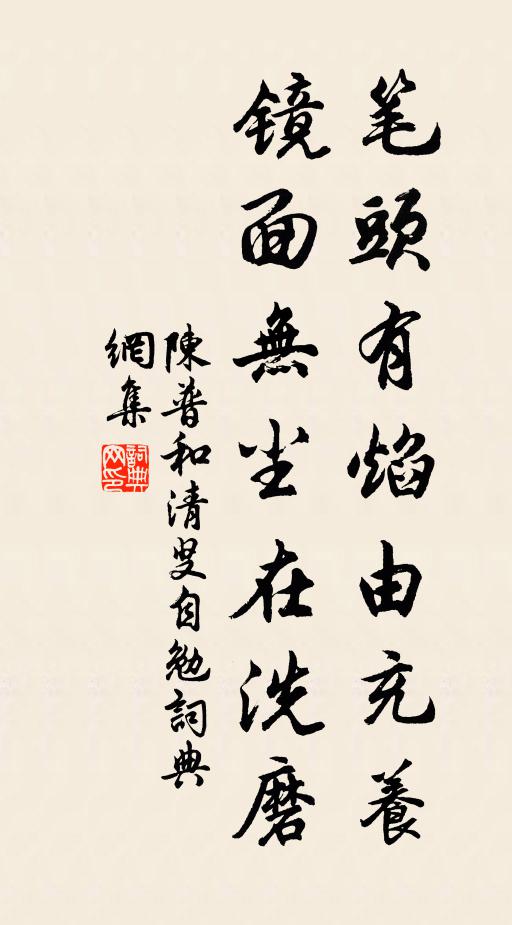 笔頭有焰由充養
镜面無尘在洗磨
陳普和清叟自勉詞典
網集
詞典網印